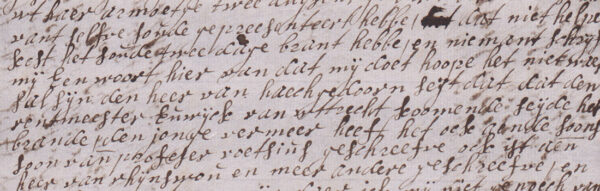 haer armoetse twee
vant selve soude representeert hebbe, dat niet helpe
seet het soude twee dage brant hebbe, en niemant schryft
mij een woort hier van dat mij doet hoope het niet waer
sal sijn den heer van haechredoorn seijt dat dat den
rentmeester van uttrecht koomende seijde het
brande, den jonge vermeer heeft het ock aende soons
soon van profeser voetsius geschreefve ock ist den
heer van rhijnswou en meer andere geschreefve, en